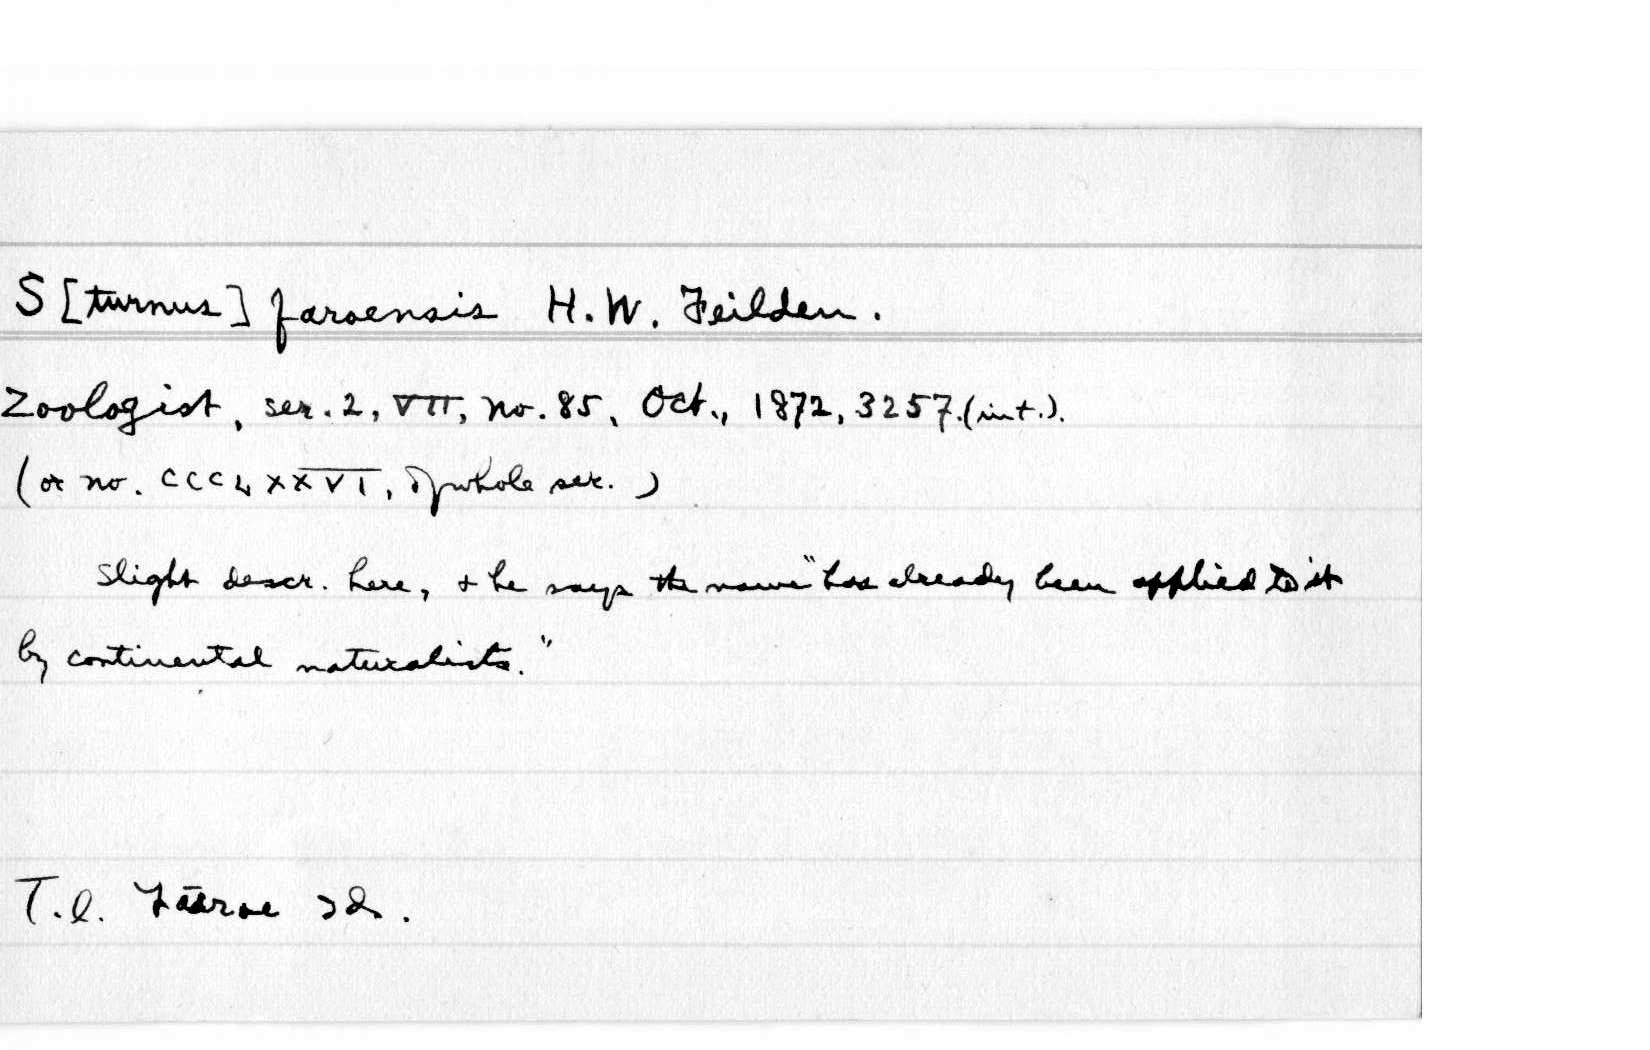 S[turnus] faroensis H.W. Feilden.
Zoologist, ser. 2, VII, no. 85, Oct., 1872, 3257. (in t.).
(or no. CCCLXXVI, of whole ser.)
Slight descr. here, & he says the name "has already been applied to it
by continental naturalists."
T.l. Faeroe Ids.